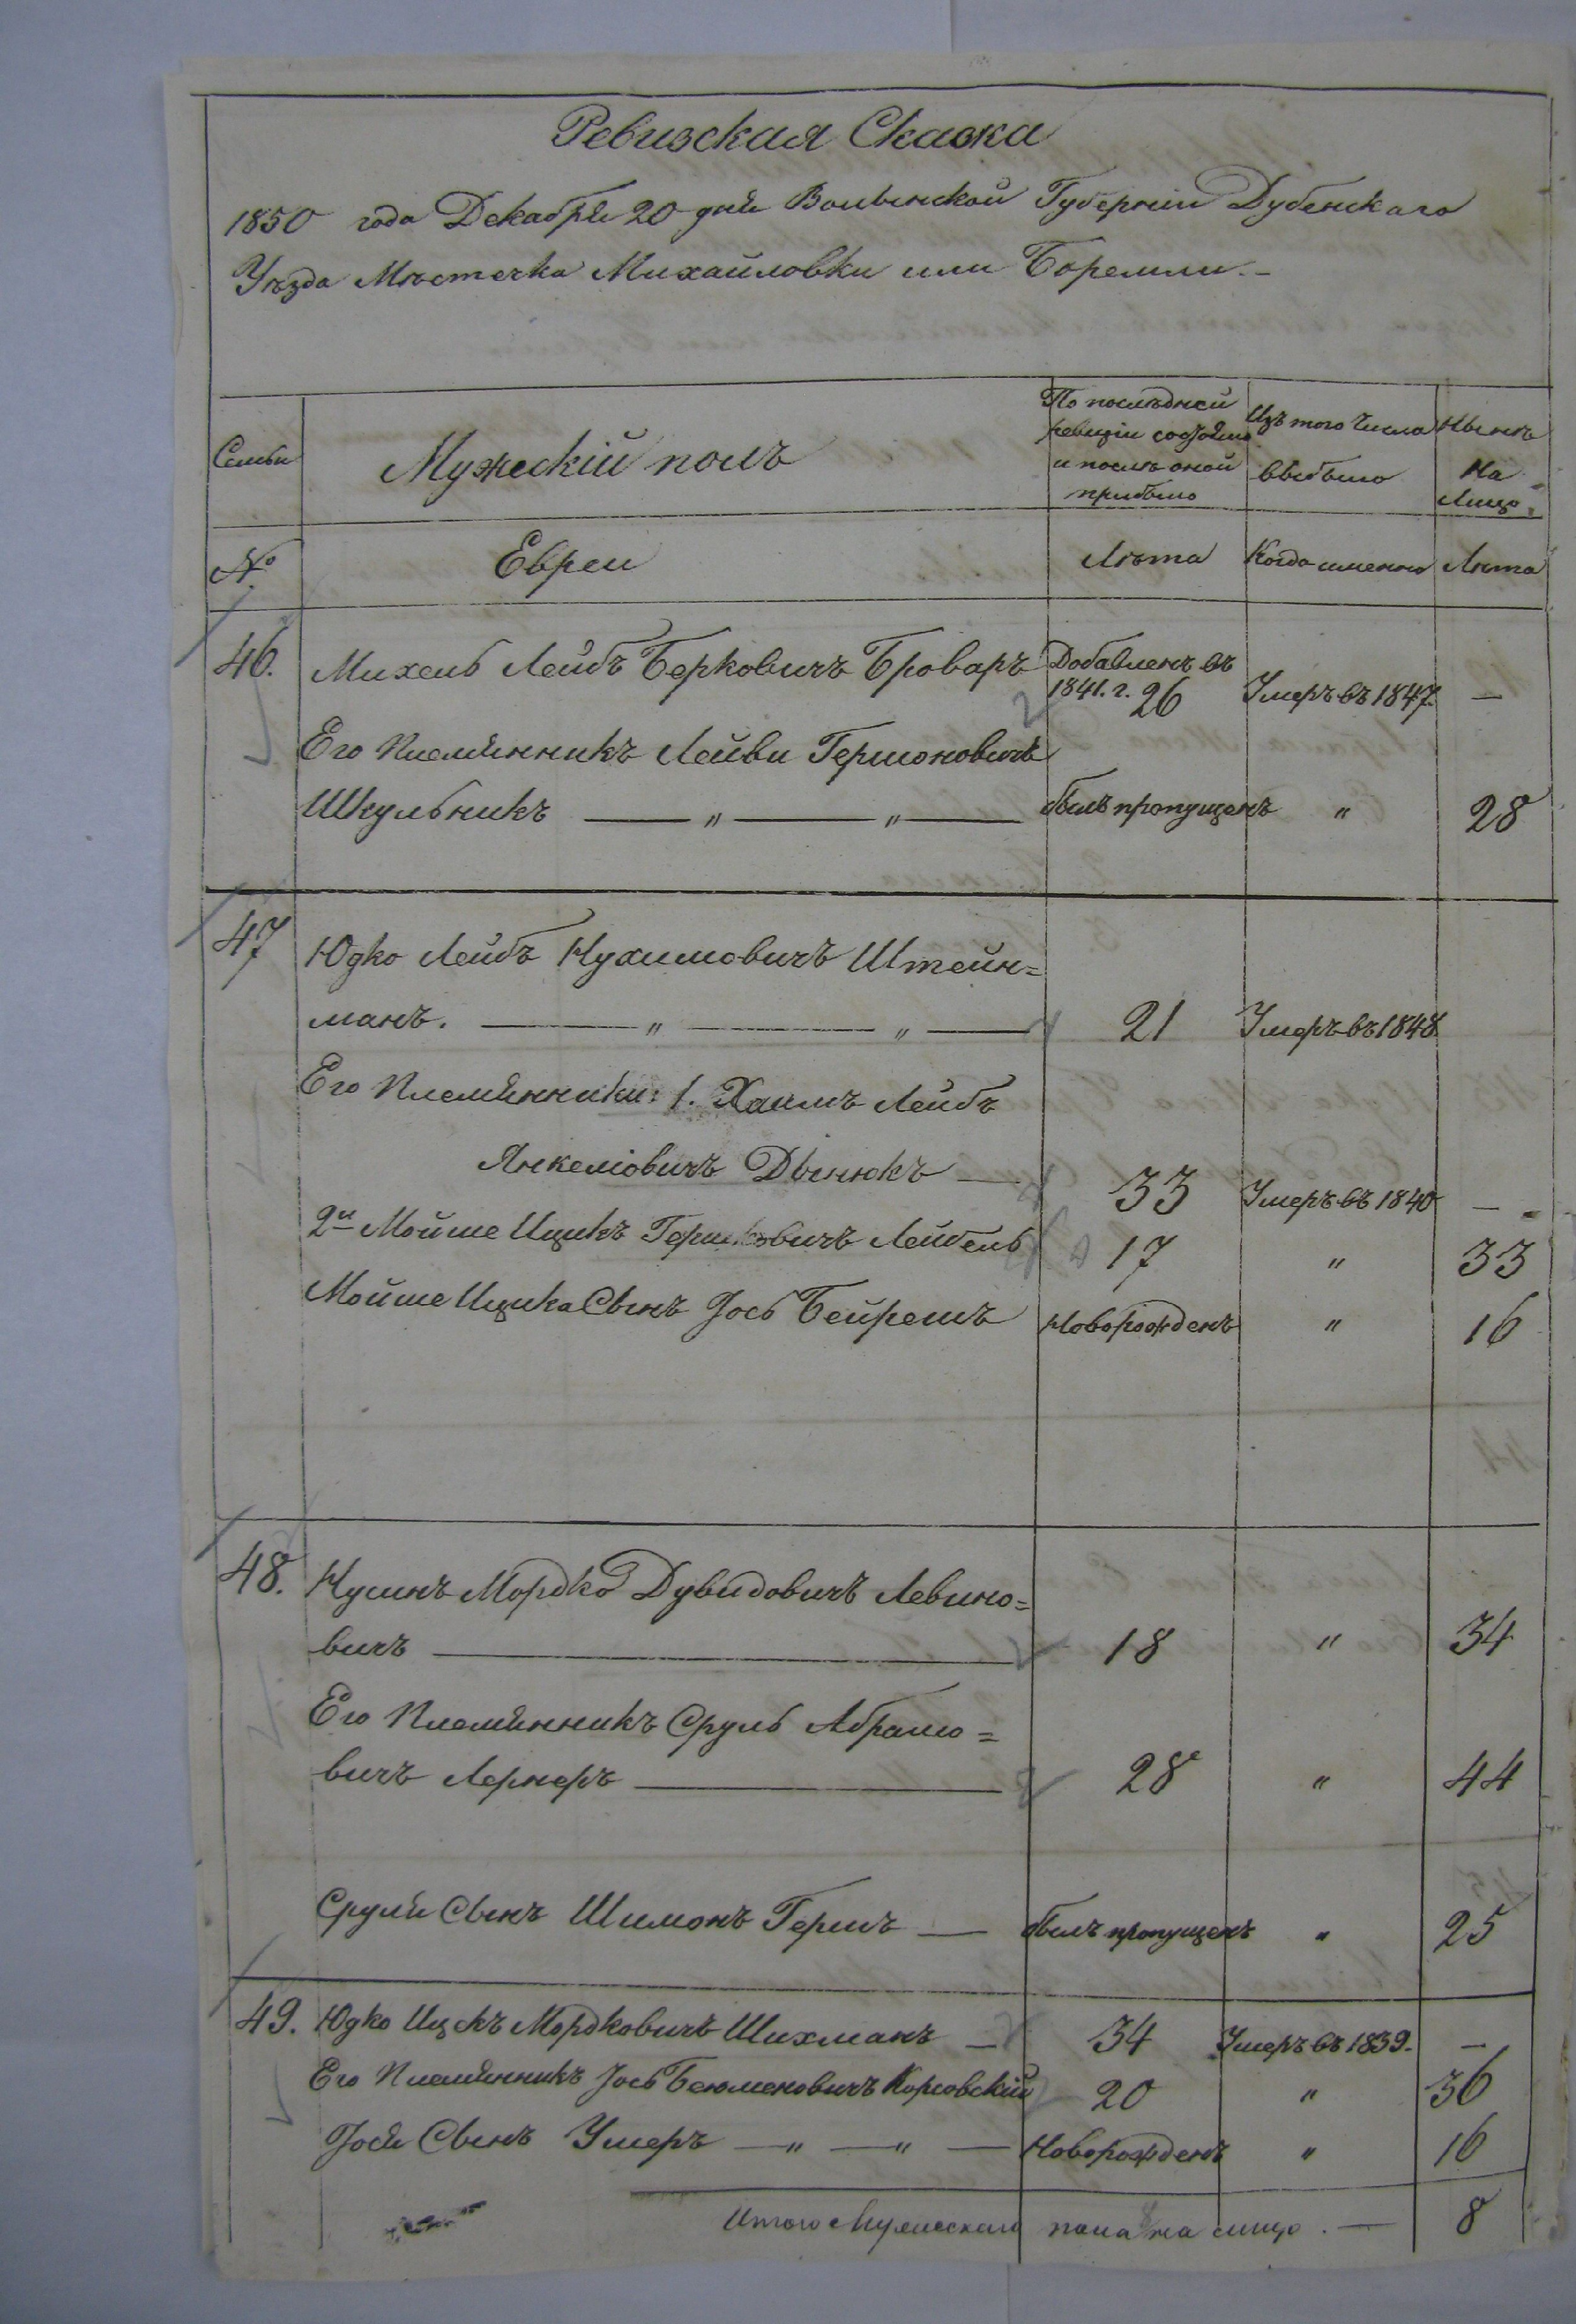 Ревизская Сказка
1850 года Декабря 20 дня Волынской Губерніи Дубенскаго
Уѣзда Мѣстечка Михайловки или Боремли.
Семьи
Мужескій полъ
По послѣдней
ревизіи состояло
и послѣ оной
прибыло
Изъ того числа
выбыло
Нынѣ
на
Лицо
№
Евреи
Лѣта
Когда именно
Лѣта
46. Михель Лейбъ Берковичъ Броваръ Добавленъ въ
1841. г. 26 Умеръ въ 1847. —
Его Племянникъ Лейви Гершоновичъ
Шкульникъ — „ — „ — былъ пропущенъ „ 28
47 Юдко Лейбъ Нухимовичъ Штейн=
манъ. — „ — „ — 21 Умеръ въ 1848
Его Племянники: 1. Хаимъ Лейбъ
Янкеліовичъ — 33 Умеръ въ 1840 —
2й Мойше Ицикъ Гершковичъ Лейбель 17 „ 33
Мойше Ицика Сынъ Іось Бейрешъ Новорожденъ „ 16
48. Нусинъ Мордко Дувидовичъ Левино=
вичъ — 18 „ 34
Его Племянникъ Сруль Абрамо=
вичъ Лернеръ — 28 „ 44
Сруля Сынъ Шимонъ Гершъ — былъ пропущенъ „ 25
49. Юдко Ицкъ Мордковичъ Шихманъ — 34 Умеръ въ 1839. —
Его Племянникъ Іось Беюменовичъ 20 „ 36
Іося Сынъ Умеръ — „ — „ — Новорожденъ „ 16
Итого Мужескаго пола на лицо . — 8